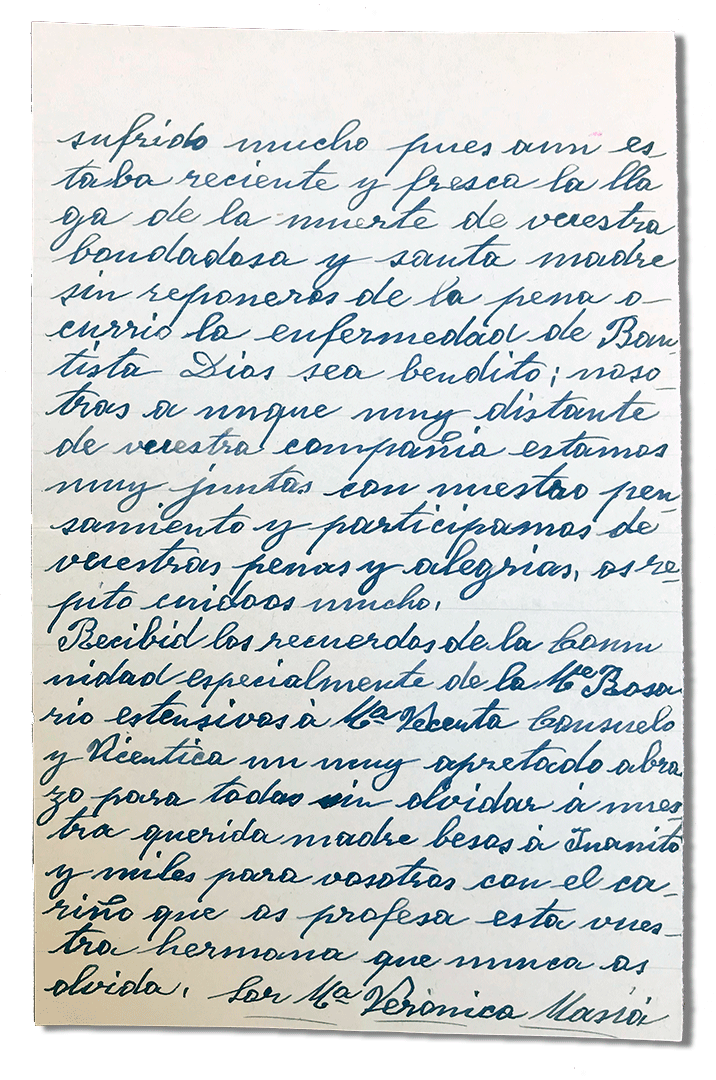 sufrido mucho pues aun es
taba reciente y fresca la lla
ga de la muerte de vuestra
bondadosa y santa madre
sin reponeros de la pena o-
currio la enfermedad de Bau-
tista Dios sea bendito; noso-
tras a unque muy distante
de vuestra compañia estamos
muy juntas con nuestro pen
samiento y participamos de
vuestras penas y alegrias, os re-
pito cuidaos mucho.
Recibid los recuerdos de la Comu
nidad especialmente de la Me Rosa
rio estensivos à Ma Vecenta Consuelo
y Vicentica un muy apretado abra
zo para todas sin olvidar à nues-
tra querida madre besos à Juanito
y miles para vosotros con el ca-
riño que os profesa esta vues-
tra hermana que nunca os
olvida. Sor Ma Verònica Masià